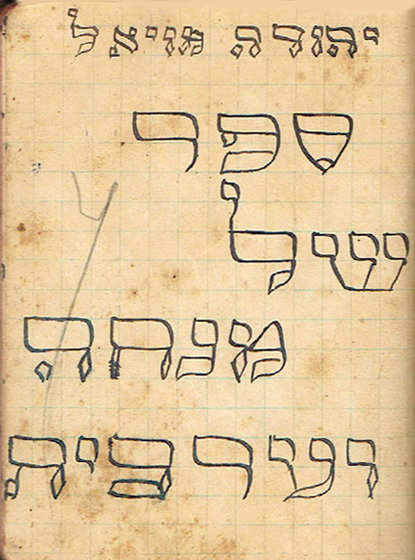 יהודה מויאל
ספר
של
מנחה
וערבית